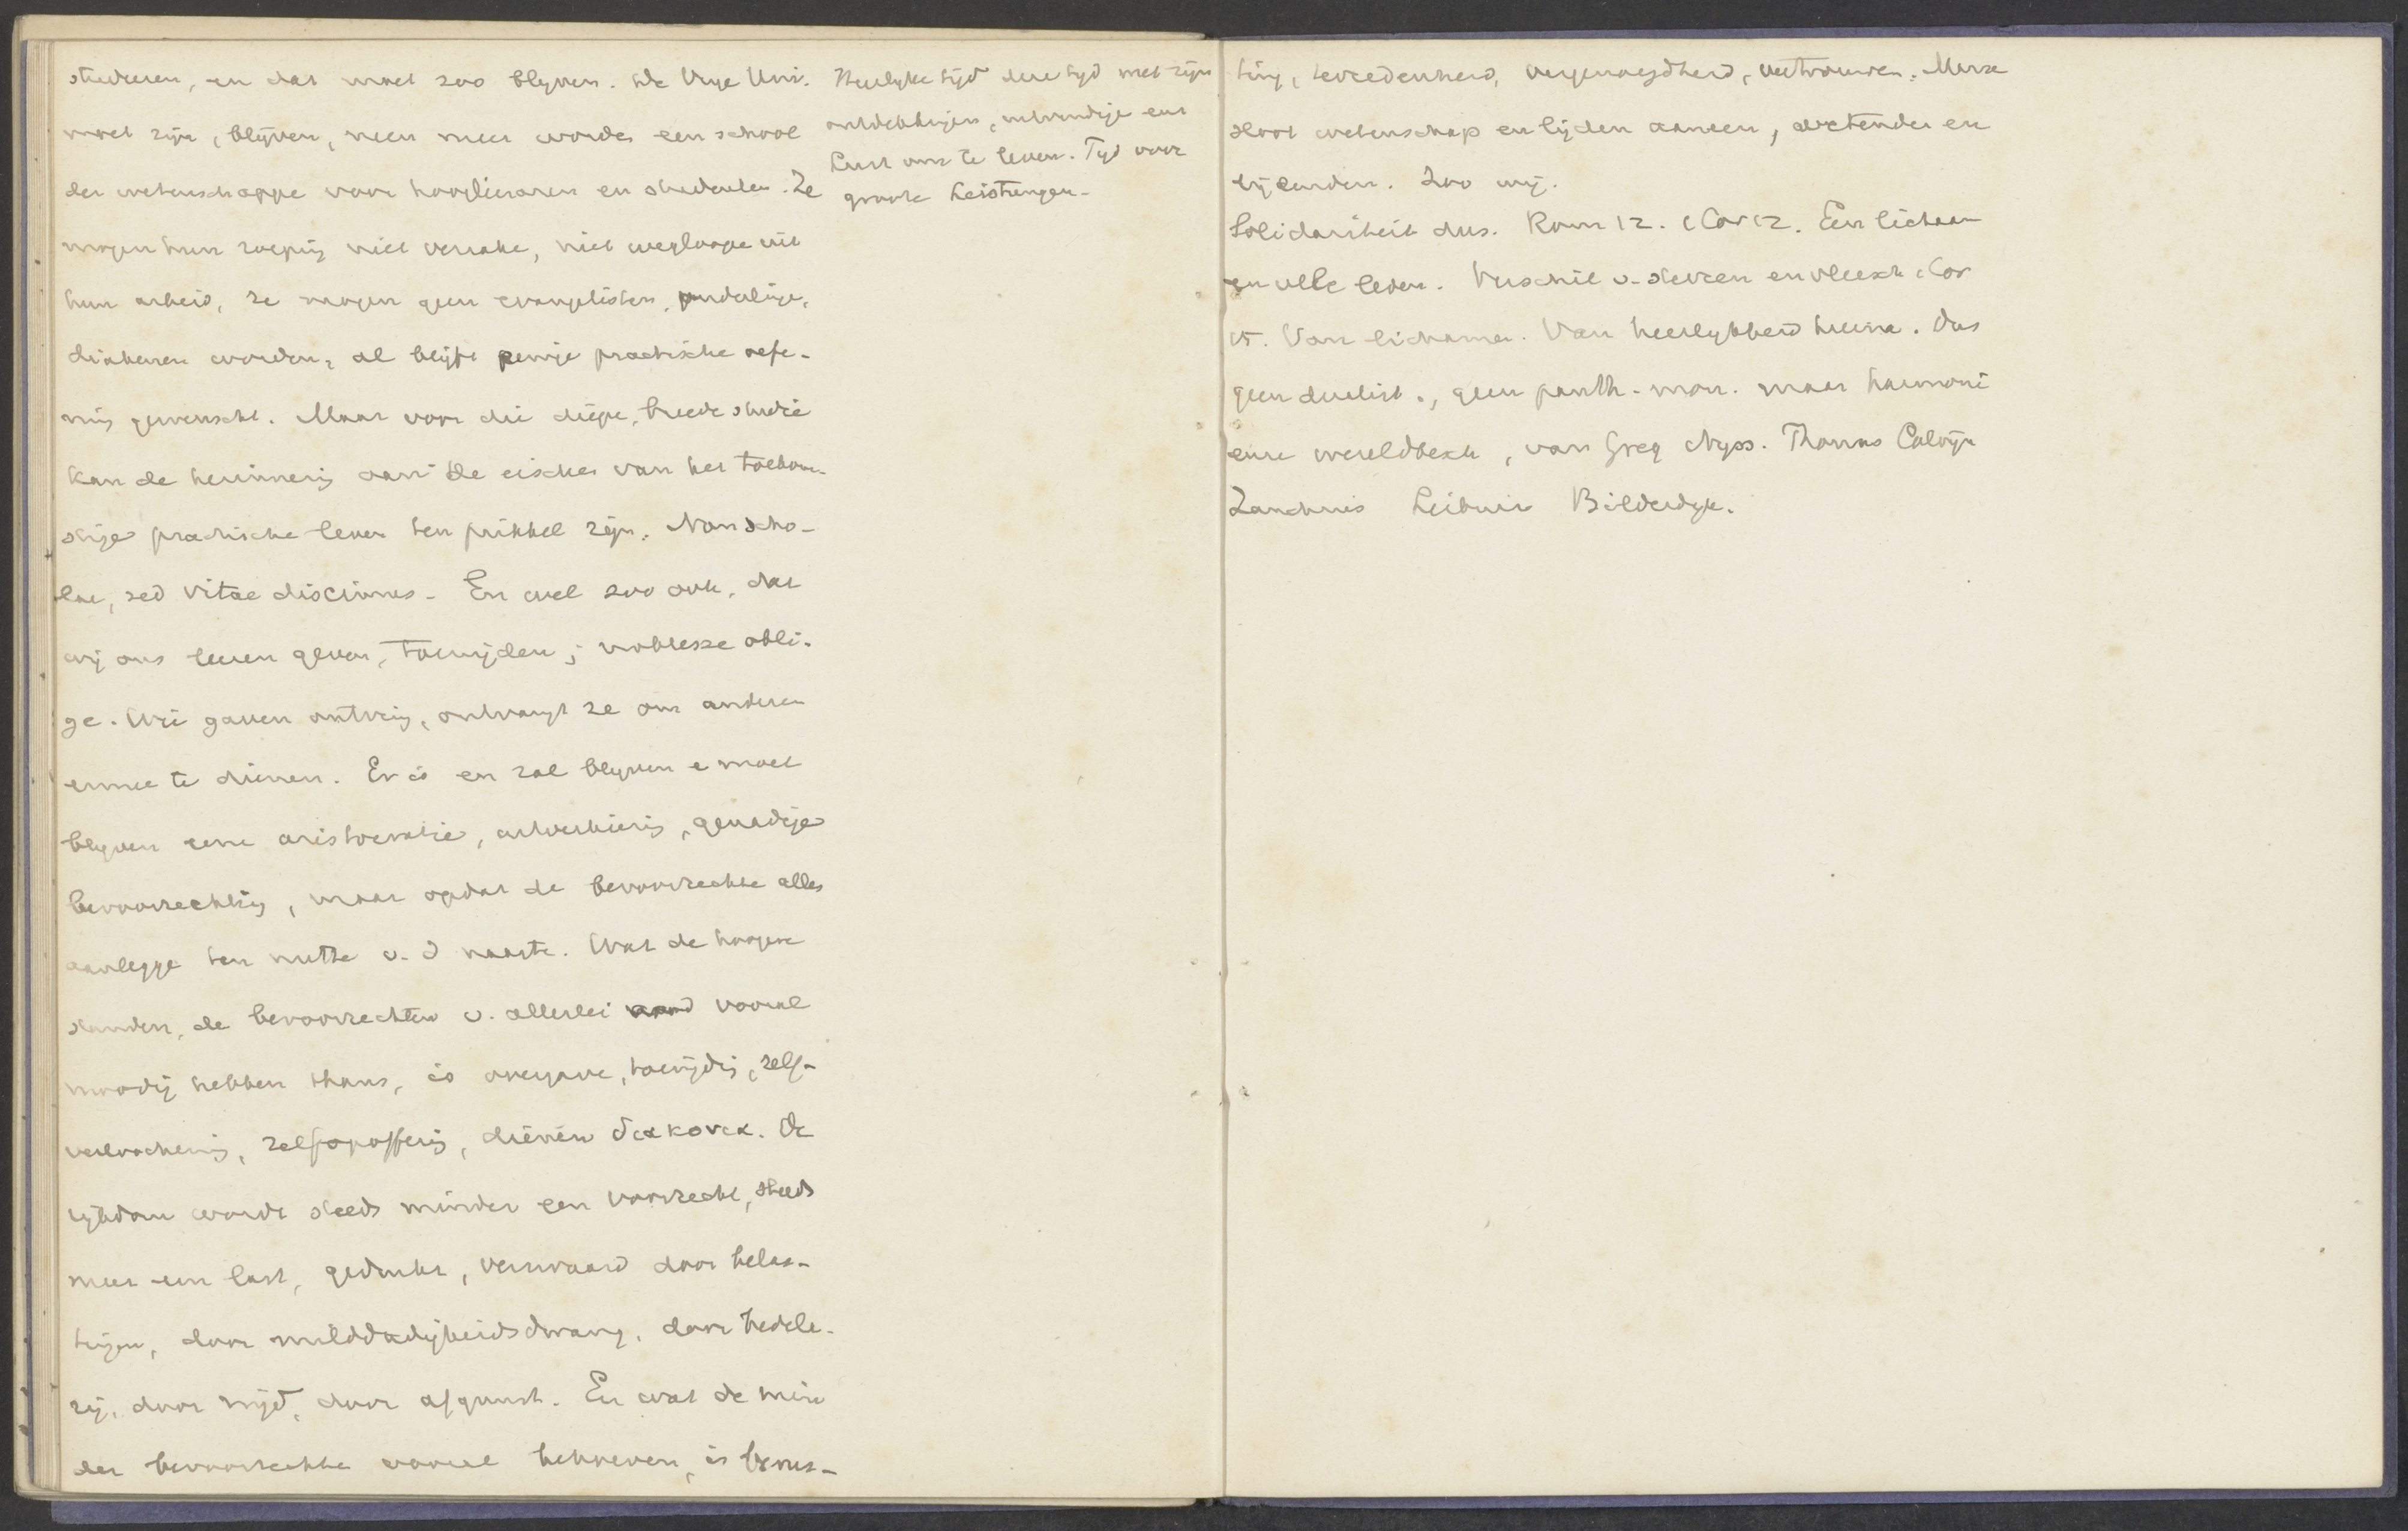 studeeren, en dat moet zoo blijven. De Vrije Uni.
moet zijn, blijven, neen meer worden een school
der wetenschappe voor hoogleeraren en studenten. Ze
mogen hun roeping niet verzake, niet wegloope uit
hun arbeid, ze mogen geen evangelisten,
diakenen worden, al blijft eenige practische oefe-
ning gewenscht. Maar voor die diepe, breede studie
kan de herinnering aan de eischen van het toekom-
stige practische leven ten prikkel zijn. Non scho-
lae, sed vitae discimus. En wel zoo ook, dat
wij ons leven geven, toewijden; noblesse obli-
ge. Wie gaven ontving, ontvangt ze om anderen
ermee te dienen. Er is en zal blijven e moet
blijven eene aristocratie, uitverkiezing, genadige
bevoorrechting, maar opdat de bevoorrechte alles
aanlegge ten nutte v. d naaste. Wat de hoogere
standen, de bevoorrechten v. allerlei aard vooral
noodig hebben thans, is overgave, toewijding, zelf-
verloochening, zelfopoffering, dienen διακονεω. De
rijkdom wordt steeds minder een voorrecht, steeds
meer een last, gedrukt, verzwaard door belas-
tingen, door milddadigheidsdwang, door bedela-
rij, door nijd, door afgunst. En wat de min
der bevoorrechte vooral behoeven, is berus-
Heerlijke tijd deze tijd met zijn
ontdekkingen, uitvindingen eene
Lust om te leven. Tijd voor
groote Leistungen.
ting, tevredenheid, vergenoegdheid, vertrouwen.
sloot wetenschap en lijden aaneen, wetenden en
lijdenden. Zoo wij.
Solidariteit dus. Rom 12. 1 Cor 12. Een lichaam
en vele leden. Verschil v. sterren en vleesch 1 Cor
15. Van lichamen. Van heerlijkheid hierna. Dus
geen dualist., geen panth. mon. maar harmoni
eene wereldbesch, van Greg Nyss. Thomas Calvijn
Zanchius Leibniz Bilderdijk.